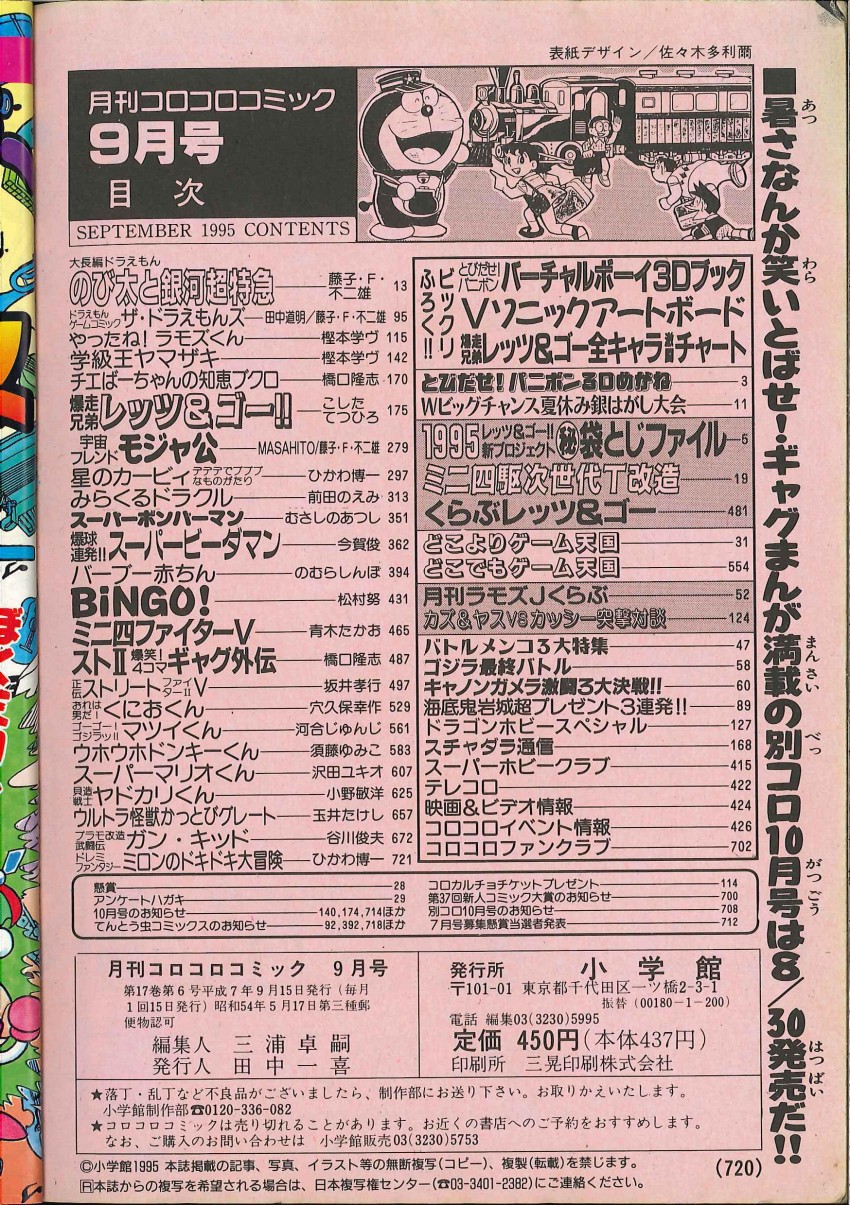 表紙デザイン/佐々木多利爾
月刊コロコロコミック
9月号
目次
SEPTEMBER 1995 CONTENTS
大長編ドラえもん
のび太と銀河超特急 藤子・F・不二雄 13
ドラえもんゲームコミック ザ・ドラえもんズ 田中道明/藤子・F・不二雄 95
やったね!ラモズくん 樫本学ヴ 115
学級王ヤマザキ 樫本学ヴ 142
チエばーちゃんの知恵ブクロ 橋口隆志 170
爆走兄弟レッツ&ゴー!! こしたてつひろ 175
宇宙フレンド モジャ公 MASAHITO/藤子・F・不二雄 279
星のカービィ デデデでプププなものがたり ひかわ博一 297
みらくるドラクル 前田のえみ 313
スーパーボンバーマン むさしのあつし 351
爆球連発!!スーパービーダマン 今賀俊 362
バーブー赤ちん のむらしんぼ 394
BiNGO! 松村努 431
ミニ四ファイターV 青木たかお 465
ストⅡ爆笑!4コマギャグ外伝 橋口隆志 487
正伝ストリートファイターⅡV 坂井孝行 497
おれは男だ!くにおくん 穴久保幸作 529
ゴーゴー!ゴジラッ!!マツイくん 河合じゅんじ 561
ウホウホドンキーくん 須藤ゆみこ 583
スーパーマリオくん 沢田ユキオ 607
貝造戦士ヤドカリくん 小野敏洋 625
ウルトラ怪獣かっとびグレート 玉井たけし 657
プラモ改造武闘伝 ガン・キッド 谷川俊夫 672
ドレミファンタジー ミロンのドキドキ大冒険 ひかわ博一 721
ビックリふろく!!
とびだせ!パニボン バーチャルボーイ3Dブック
Vソニックアートボード
爆走兄弟レッツ&ゴー全キャラ激闘チャート
とびだせ!パニボン3Dめがね 3
Wビッグチャンス夏休み銀はがし大会 11
1995レッツ&ゴー!!新プロジェクト㊙袋とじファイル 5
ミニ四駆次世代T改造 19
くらぶレッツ&ゴー 481
どこよりゲーム天国 31
どこでもゲーム天国 554
月刊ラモズJくらぶ 52
カズ&ヤスVSカッシー突撃対談 124
バトルメンコ3大特集 47
ゴジラ最終バトル 58
キャノンガメラ激闘3大決戦!! 60
海底鬼岩城超プレゼント3連発!! 89
ドラゴンホビースペシャル 127
スチャダラ通信 168
スーパーホビークラブ 415
テレコロ 422
映画&ビデオ情報 424
コロコロイベント情報 426
コロコロファンクラブ 702
懸賞 28
アンケートハガキ 29
10月号のお知らせ 140,174,714ほか
てんとう虫コミックスのお知らせ 92,392,718ほか
コロカルチョチケットプレゼント 114
第37回新人コミック大賞のお知らせ 700
別コロ10月号のお知らせ 708
7月号募集懸賞当選者発表 712
月刊コロコロコミック 9月号
第17巻第6号平成7年9月15日発行(毎月
1回15日発行)昭和54年5月17日第三種郵
便物認可
編集人 三浦卓嗣
発行人 田中一喜
発行所 小学館
〒101-01 東京都千代田区一ツ橋2-3-1
振替(00180-1-200)
電話 編集03(3230)5995
定価 450円(本体437円)
印刷所 三晃印刷株式会社
★落丁・乱丁など不良品がございましたら、制作部にお送り下さい。お取りかえいたします。
小学館制作部☎0120-336-082
★コロコロコミックは売り切れることがあります。お近くの書店へのご予約をおすすめします。
なお、ご購入のお問い合わせは 小学館販売03(3230)5753
©小学館1995 本誌掲載の記事、写真、イラスト等の無断複写(コピー)、複製(転載)を禁じます。
R本誌からの複写を希望される場合は、日本複写権センター(☎03-3401-2382)にご連絡ください。
(720)
■暑さなんか笑いとばせ!ギャグまんが満載の別コロ10月号は8/30発売だ!!